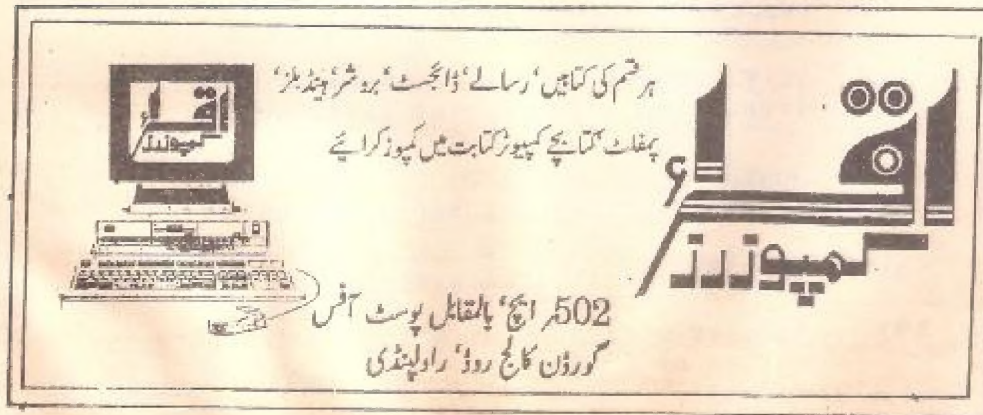 اقرأ
کمپوزرز
ہر قسم کی کتابیں' رسالے' ڈائجسٹ' بروشر' ہینڈ بلز'
پمفلٹ' کتابچے کمپیوٹر کتابت میں کمپوز کرائیے
اقرأ
کمپوزرز
502؍ ایچ' بالمقابل پوسٹ آفس
گورڈن کالج روڈ' راولپنڈی